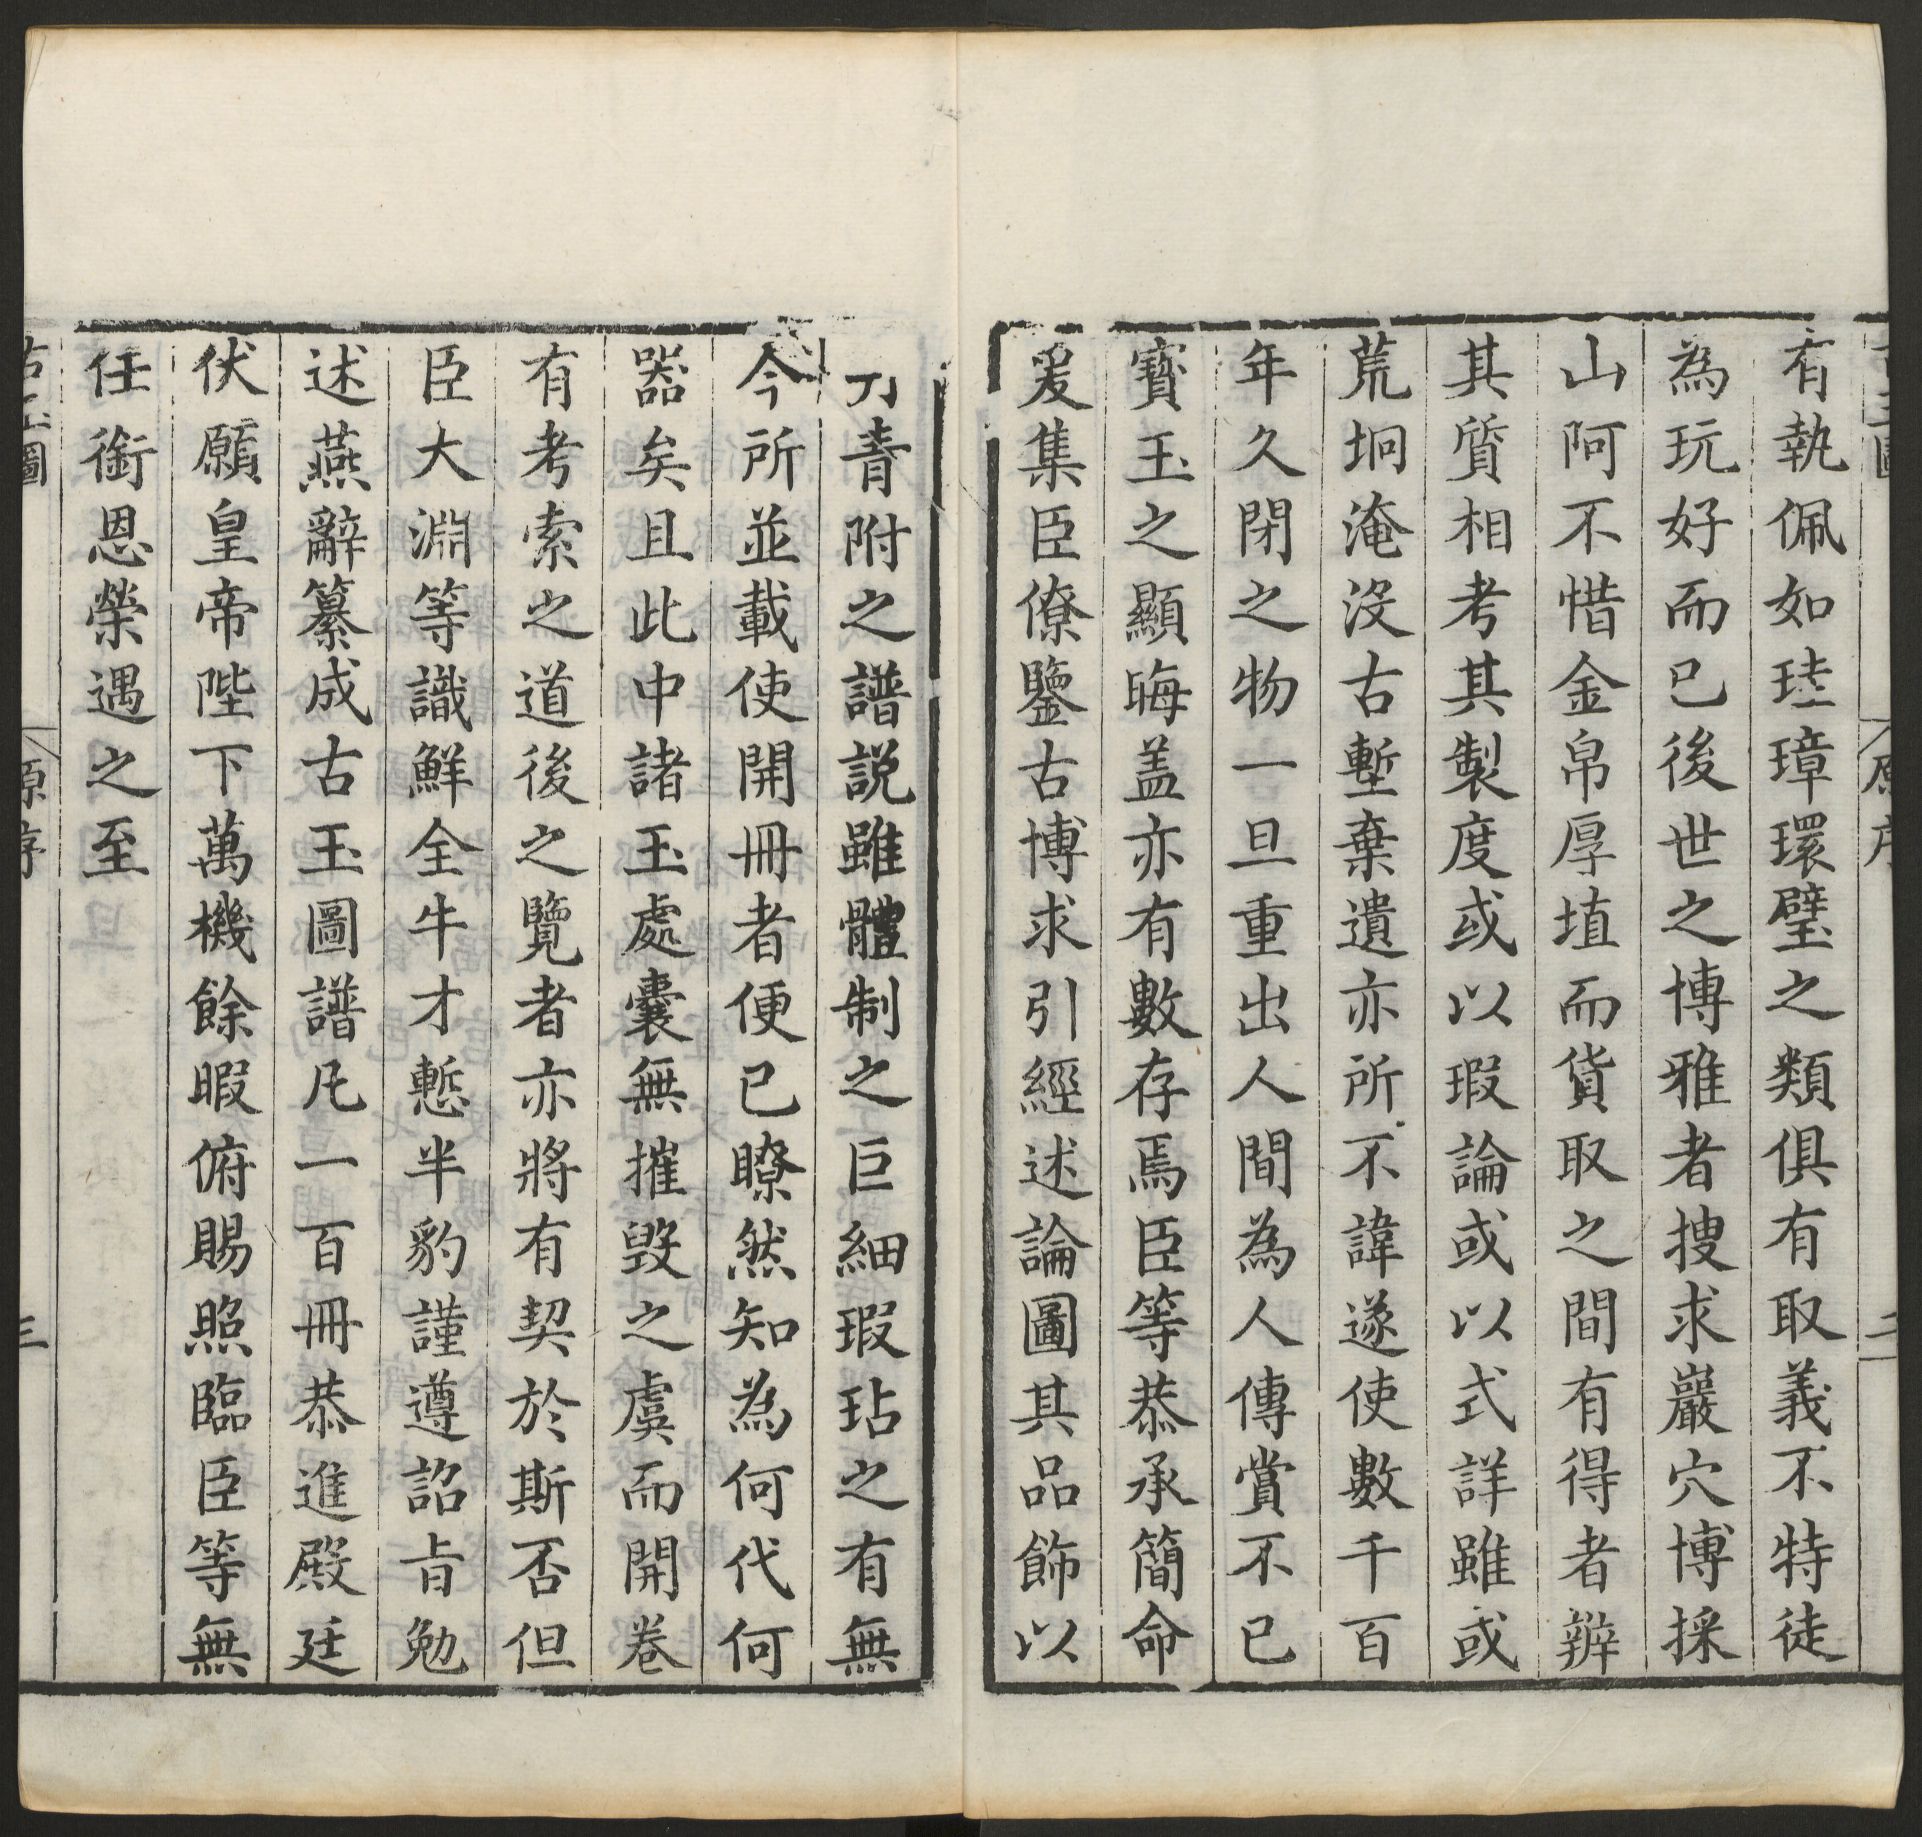 有執佩如珪璋環璧之類俱有取義不特徒
為玩好而已後世之博雅者搜求巖穴博採
山阿不惜金帛厚埴而貨取之間有得者辨
其質相考其製度或以瑕論或以式詳雖或
荒坰淹沒古塹棄遺亦所不諱遂使數千百
年久閉之物一旦重出人間為人傳賞不已
寶玉之顯晦盖亦有數存焉臣等恭承簡命
爰集臣僚鑒古博求引經述論圖其品飾以
青附之譜説雖體制之巨細瑕玷之有無
今所並載使開冊者便已瞭然知為何代何
器矣且此中諸玉處囊無摧毀之虞而開卷
有考索之道後之覽者亦將有契於斯否但
臣大淵等識鮮全牛才慙半豹謹遵詔旨勉
述燕辭纂成古玉圖譜凡一百冊恭進殿廷
伏願皇帝陛下萬機餘暇俯賜照臨臣等無
任銜恩榮遇之至
古玉圖
原序
三